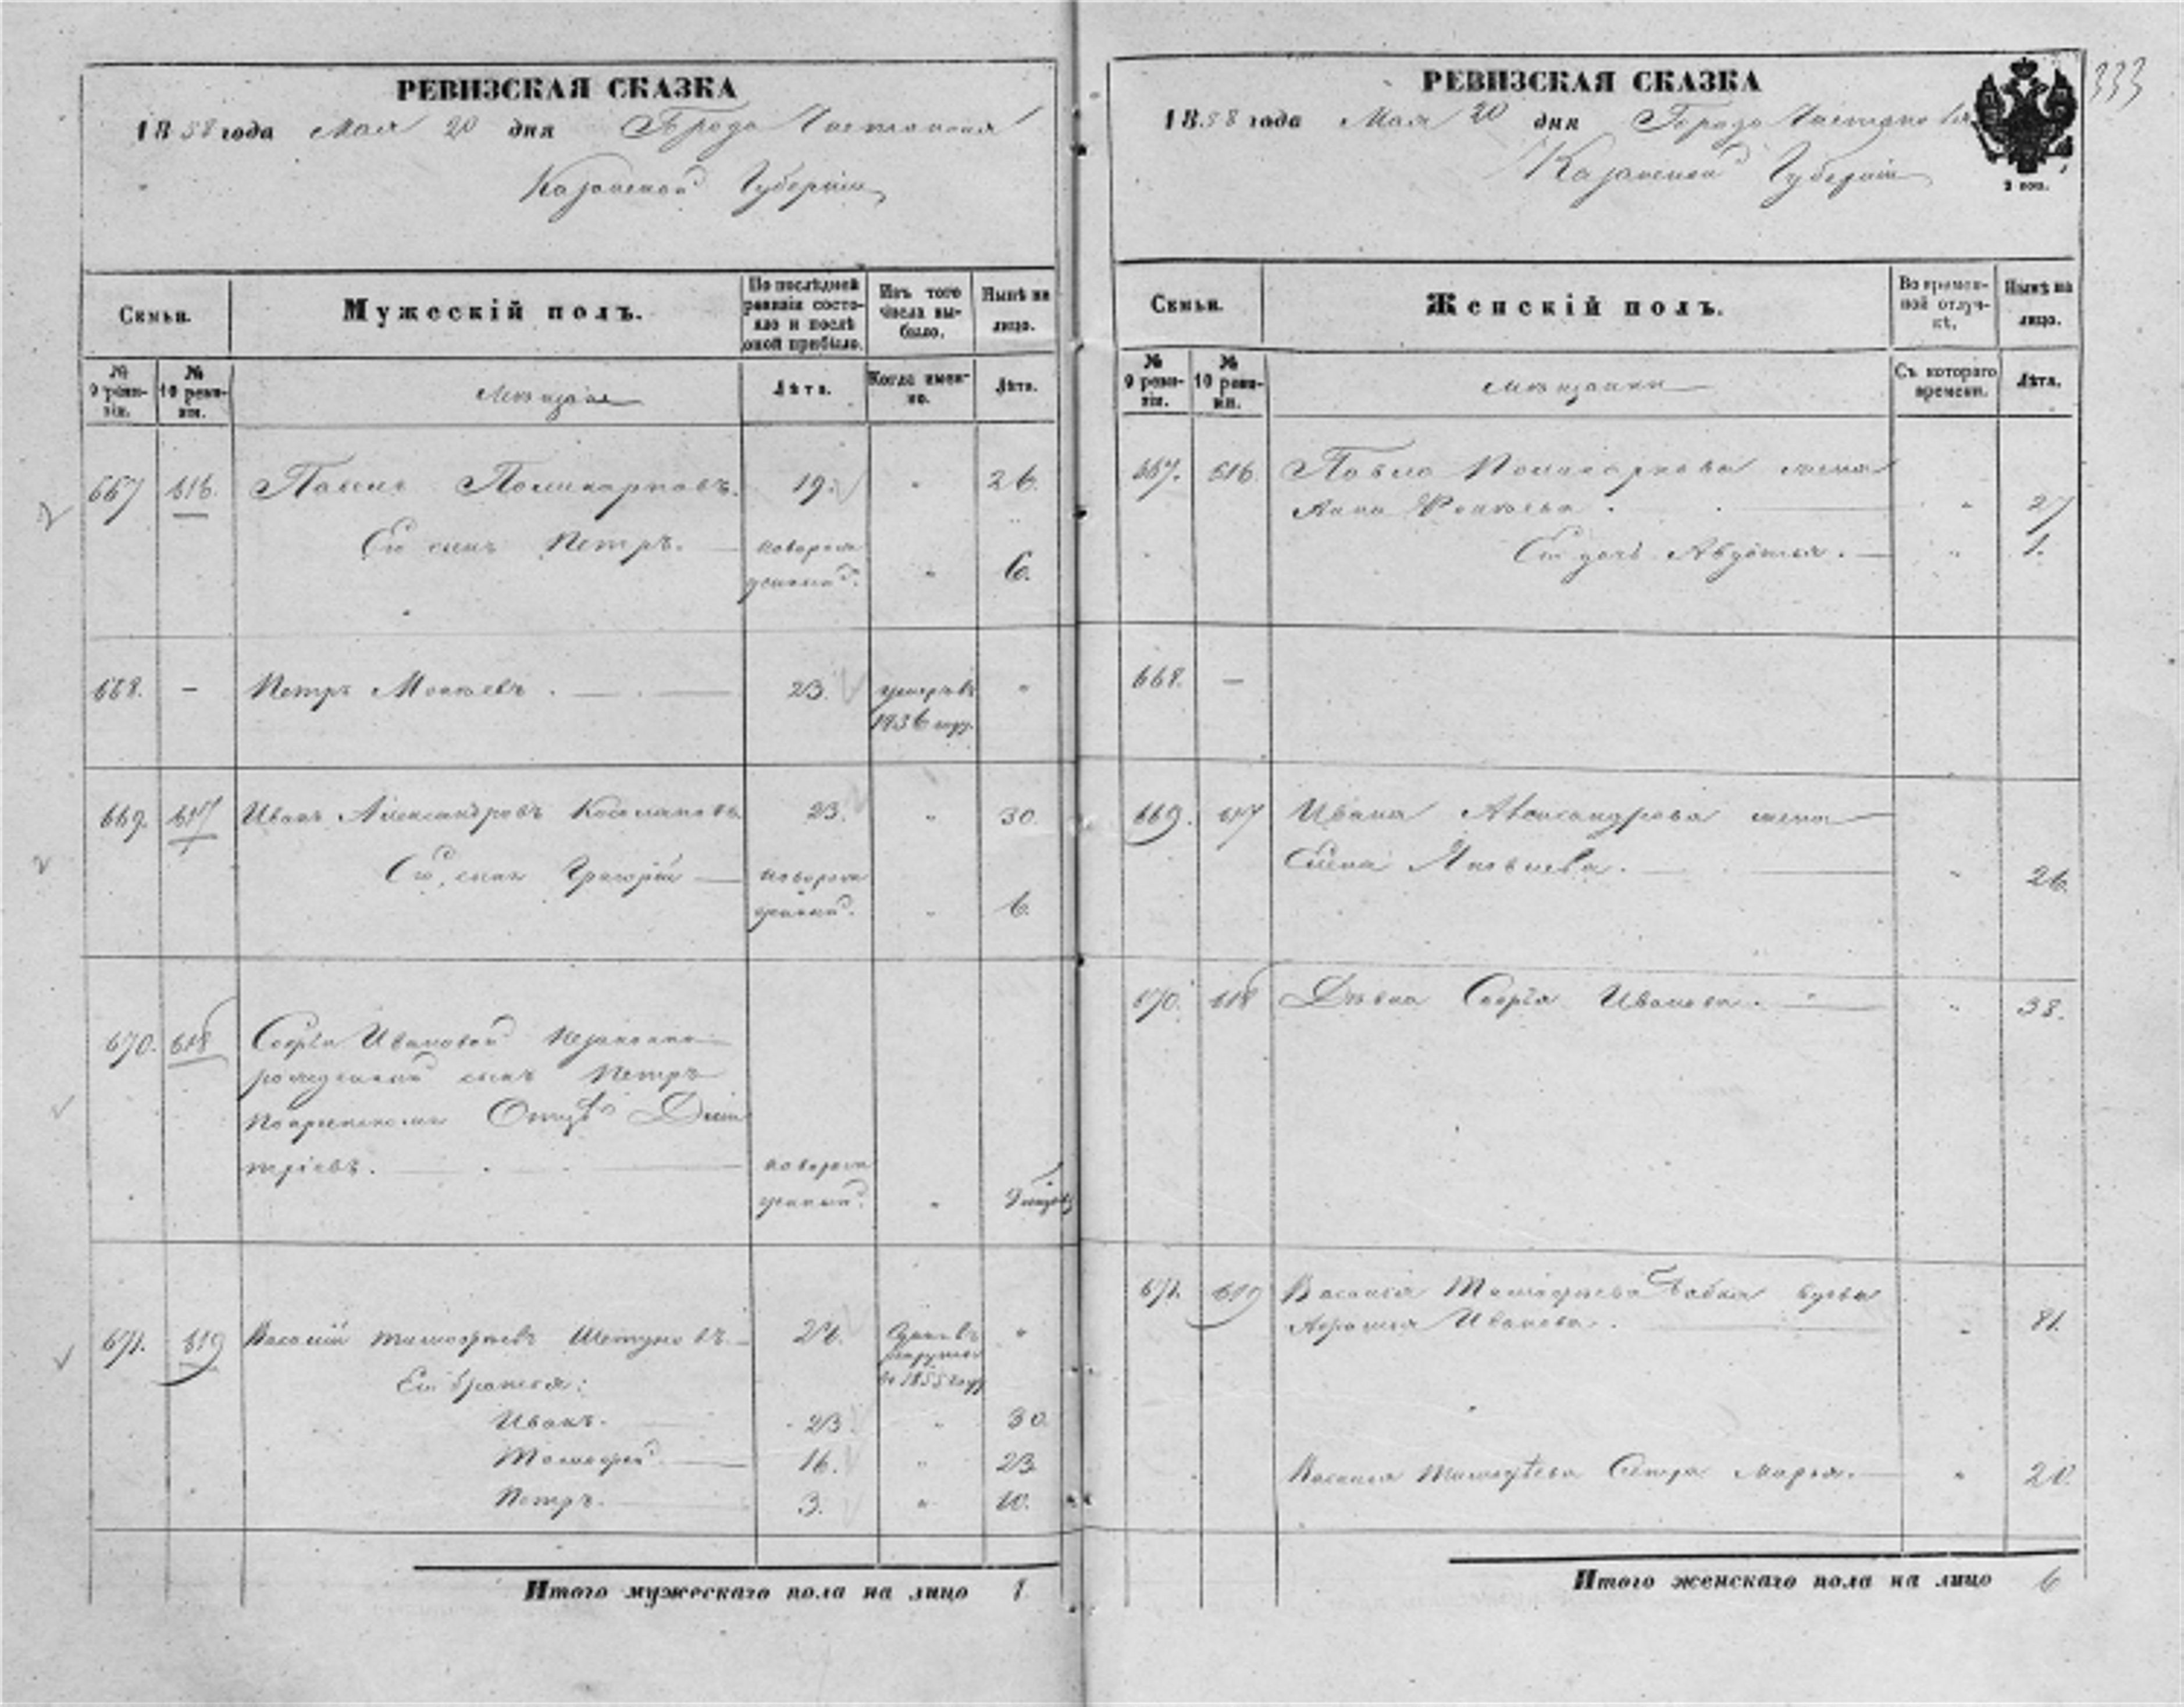 РЕВИЗСКАЯ СКАЗКА
1858 года Мая 20 дня Города Чистополя
Казанской Губернiи
Семьи.
Мужескiй полъ.
По послѣдней ревизiи состояло и послѣ оной прибыло.
Изъ того числа выбыло.
Нынѣ на лицо.
№ 9 ревизiи.
№ 10 ревизiи.
Мѣщане
Лѣта.
Когда именно.
Лѣта.
667 616. Павелъ Поликарповъ. 19. " 26.
Его сынъ Петръ. новорожденный. " 6.
668. — Петръ Моисѣевъ. 23. умеръ въ "
669. 617 Иванъ Александровъ 23. " 30.
Его сынъ Григорiй новорожденный. " 6.
670. 618 Софьи Ивановой незаконно
рожденный сынъ Петръ
Отцѣ Дми
трiевъ. новорожденный. "
671. 619 Василiй Тимофѣевъ 24. "
въ 1855 году
Его братья:
Иванъ. 23. " 30.
Тимофей. 16. " 23.
Петръ. 3. " 10.
Итого мужескаго пола на лицо
РЕВИЗСКАЯ СКАЗКА
333
1858 года Мая 20 дня Города Чистополя
Казанской Губернiи
2 коп.
Семьи.
Женскiй полъ.
Во временной отлучкѣ.
Нынѣ на лицо.
№ 9 ревизiи.
№ 10 ревизiи.
Мѣщанки
Съ котораго времени.
Лѣта.
667. 616 Павла Поликарпова жена
Анна " 27
Его дочь Авдотья. " 1.
668. —
669. 617 Ивана Александрова жена
Яковлева. " 26.
670. 618 Дѣвка Софья Иванова. " 38.
671. 619 Василья Тимофѣева бабка вдова
Иванова. " 81.
Василья Тимофѣева Сестра Марья. " 20.
Итого женскаго пола на лицо 6